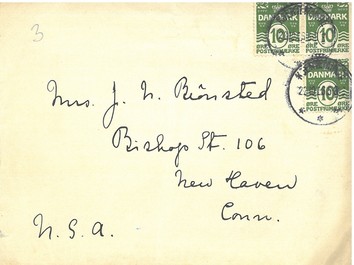 3
DANMARK DANMARK
10 10
ØRE ØRE
POSTFRIMÆRKE POSTFRIMÆRKE
DANMARK
10
ØRE
POSTFRIMÆRKE
Mrs. J. N. Brönsted
Bishop St. 106
New Haven
Conn.
U.S.A.